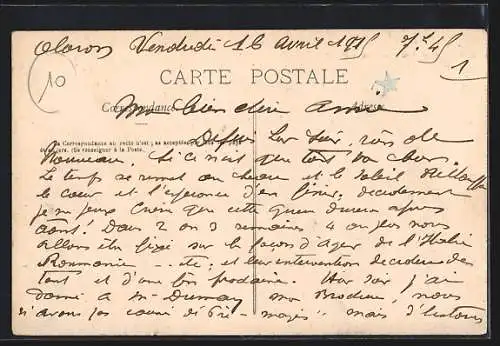 Oloron Vendredi 16 avril 1915 7h45
10
1
CARTE POSTALE
Correspondance Adresse
Mon bien cher ami
La Correspondance au recto n'est pas acceptée
(Se renseigner à la Poste.)
Depuis hier soir, rien de
nouveau, si ce n'est que tout va bien.
Le temps se remet au beau et le soleil
le cœur et l'espérance d'en finir, décidément
je ne peux croire que cette guerre durera après
août! Dans 2 ou 3 semaines 4 au plus nous
allons être fixé sur la façon d'agir de l'Italie
Roumanie - etc. et leur intervention décidera de
tout et d'une fin prochaine. Hier soir j'ai
donné à Mr Dumay nous
n'avons pas mais d'histoires